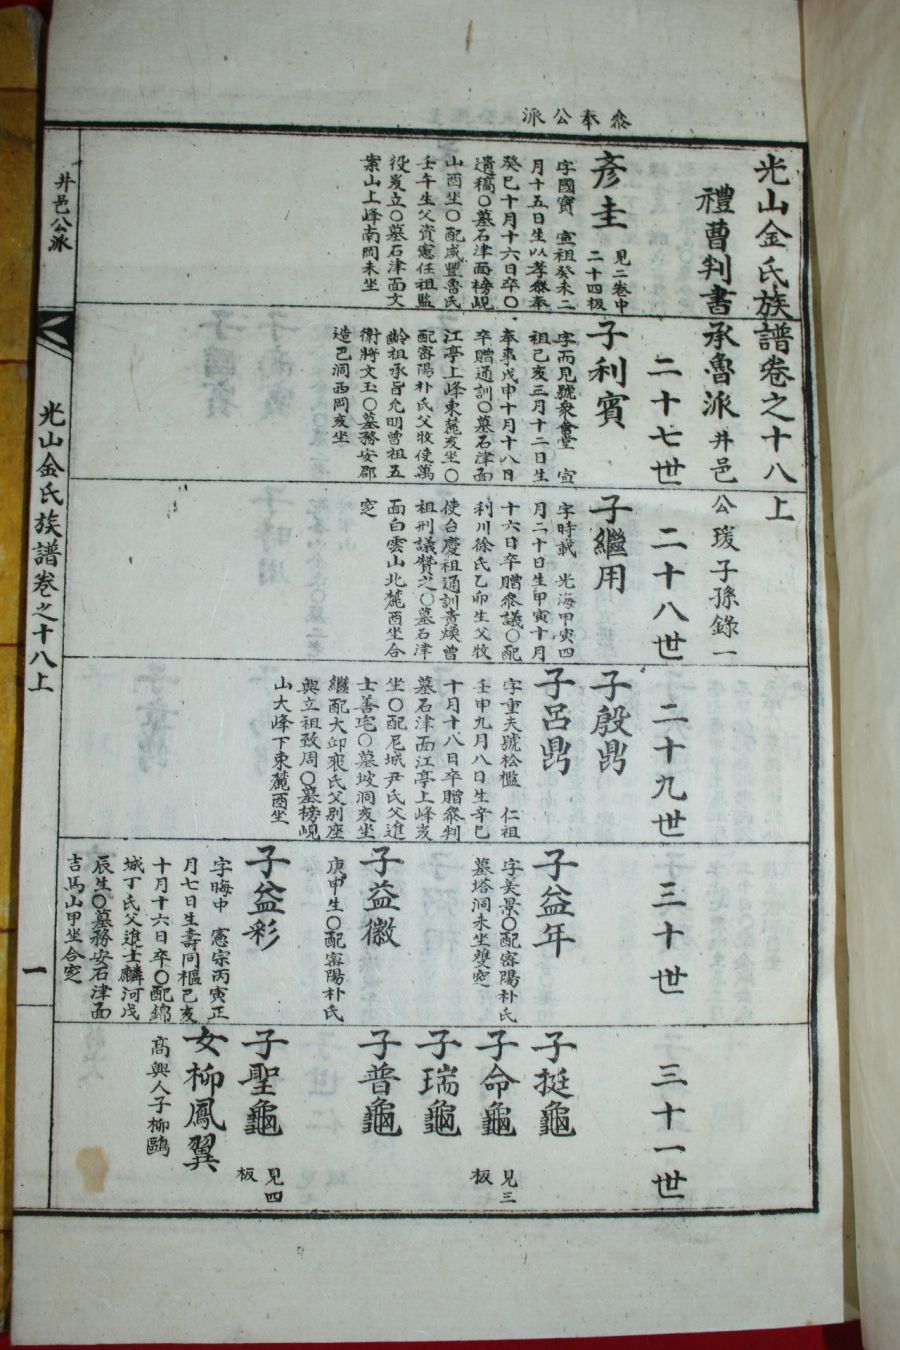 派公奉叅
光山金氏族譜卷之十八上
禮曹判書承魯派 井邑公瑗子孫錄一
彥圭 見二卷中
二十四板
字國寶 宣祖癸未二
月十五日生以孝叅奉
癸巳十月十六日卒〇
遺稿〇墓石津面榜峴
山酉坐〇配咸豐魯氏
壬午生父資憲任祖監
役岌立〇墓石津面文
案山上峰南岡未坐
二十七世
子利賓
字而見號衆會堂 宣
祖己亥三月十二日生
奉事戊申十月十八日
卒贈通訓〇墓石津面
江亭上峰東麓亥坐〇
配密陽朴氏父牧使萬
齡祖承旨允明曾祖五
衛將文玉〇墓務安郡
造己洞西岡亥坐
二十八世
子繼用
字時載 光海甲寅四
月二十日生甲寅十月
十六日卒贈叅議〇配
利川徐氏乙卯生父牧
使台慶祖通訓責煥曾
祖刑議贊之〇墓石津
面白雲山北麓酉坐合
窆
二十九世
子殷鼎
子呂鼎
字重夫號松檻 仁祖
壬申九月八日生辛巳
十月十八日卒贈叅判
墓石津面江亭上峰亥
坐〇配尼城尹氏父進
士善宅〇墓坡洞亥坐
繼配大邱裵氏父別座
興立祖致周〇墓榜峴
山大峰下東麓酉坐
三十世
子益年
字美景〇配密陽朴氏
墓塔洞未坐雙窆
子益徽
庚申生〇配密陽朴氏
子益彩
字晦中 憲宗丙寅正
月七日生壽同樞己亥
十月十六日卒〇配錦
城丁氏父進士麟河戊
辰生〇墓務安石津面
吉馬山甲坐合窆
三十一世
子挺龜
子命龜 見三
板
子瑞龜
子普龜
子聖龜 見四
板
女柳鳳翼
高興人子柳鷗
井邑公派
光山金氏族譜卷之十八上
一